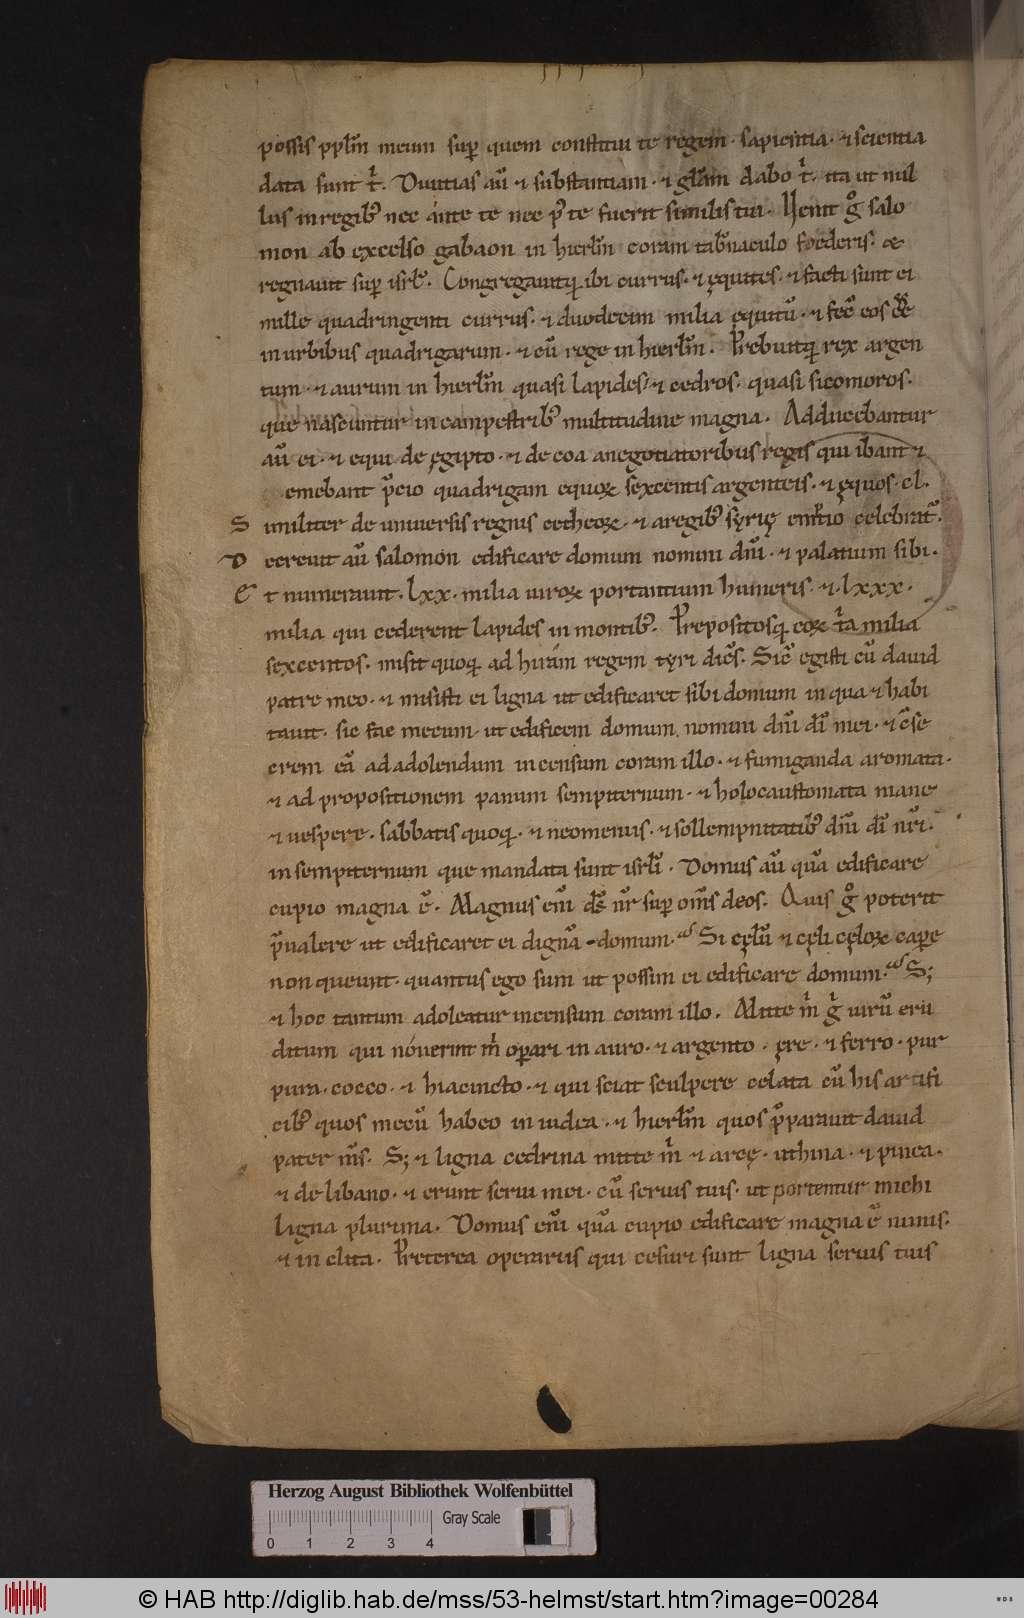 possis pplm̄ meum sup̄ quem constitui te regem· sapientia· ⁊ scientia
data sunt t̄· Diuitias aū ⁊ substantiam· ⁊ glām dabo t̄· ita ut nul
lus in regib; nec ante te nec p̄ te fuerit similis tui· Uenit gͦ salo
mon ab excelso gabaon in hierlm̄ coram tab̄naculo foederis· ⁊
regnauit sup̄ isrl̄· Congregauitq; ibi currus· ⁊ ęquites· ⁊ facti sunt ei
mille quadringenti currus· ⁊ duodecim milia ęquitū· ⁊ fec̄ eos ēē
in urbibus quadrigarum· ⁊ cū rege in hierlm̄· Prebuitq; rex argen
tum· ⁊ aurum in hierlm̄ quasi lapides· ⁊ cedros· quasi sicomoros·
que nascuntur in campestrib; multitudine magna· Adducebantur
aū ei· ⁊ equi de ęgipto· ⁊ de coa a negotiatoribus regis qui ibant ⁊
emebant p̄cio quadrigam equoꝝ sexcentis argenteis· ⁊ ęquos· cl·
S imiliter de uniuersis regnis cetheoꝝ· ⁊ a regib; sẏrię emt̄io celebrat̄·
D ecreuit aū salomon edificare domum nomini dnī· ⁊ palatium sibi·
E t numerauit· lxx· milia uiroꝝ portantium humeris· ⁊· lxxx·
milia qui cederent lapides in montib;· Prepositosq; eoꝝ t̄a milia
sexcentos· misit quoq; ad hiram regem tẏri dic̄s· Sic̄ egisti cū dauid
patre meo· ⁊ misisti ei ligna ut edificaret sibi domum in qua ⁊ habi
tauit· sic fac mecum ut edificem domum nomini dnī dī mei· ⁊ c̄se
crem eā ad adolendum incensum coram illo· ⁊ fumiganda aromata·
⁊ ad propositionem panum sempiternum· ⁊ holocaustomata mane
⁊ uespere· sabbatis quoq;· ⁊ neomeniis· ⁊ sollempnitatib; dnī dī nr̄i·
in sempiternum que mandata sunt isrlī· Domus aū quā edificare
cupio magna ē· Magnus enī ds̄ nr̄ sup̄ om̄s deos· Quis gͦ poterit
p̄ualere ut edificaret ei dignā domum· Si cęlū ⁊ cęli cęloꝝ cap̄e
non queunt· quantus ego sum ut possim ei edificare domum· S;
⁊ hoc tantum adoleatur incensum coram illo· Mitte m̄ ḡ uirū eru
ditum qui nouerint m̄ op̄ari in auro· ⁊ argento· ęre· ⁊ ferro· pur
pura· cocco· ⁊ hiacincto· ⁊ qui sciat sculpere celata cū his artifi
cib; quos mecū habeo in iudea· ⁊ hierlm̄ quos p̄parauit dauid
pater m̄s· S; ⁊ ligna cedrina mitte m̄ ⁊ arcę· uthina· ⁊ pinea·
⁊ de libano· ⁊ erunt serui mei· cū seruis tuis· ut portentur michi
ligna plurima· Domus enī quā cupio edificare magna ē nimis·
⁊ inclita· Preterea operariis qui cesuri sunt ligna seruis tuis
Herzog August Bibliothek Wolfenbüttel
Gray Scale
0 1 2 3 4
© HAB http://diglib.hab.de/mss/53-helmst/start.htm?image=00284